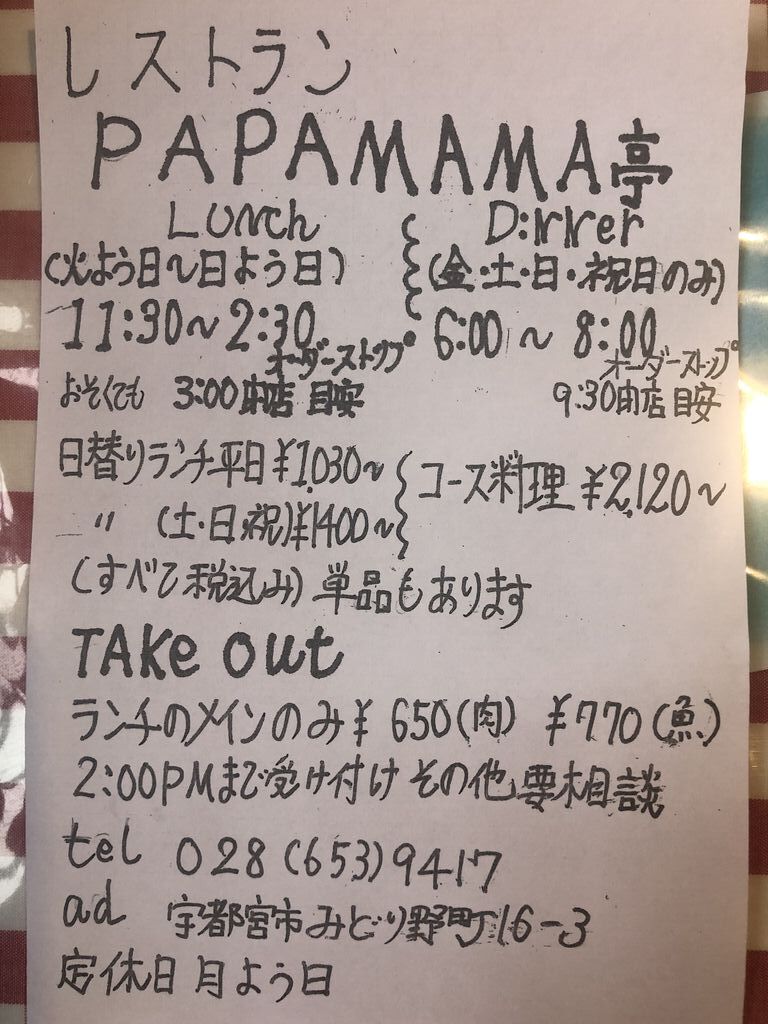 レストラン
PAPAMAMA亭
Lunch
(火よう日～日よう日)
11:30～2:30
オーダーストップ
おそくても 3:00閉店目安
Dinner
(金・土・日・祝日のみ)
6:00～8:00
オーダーストップ
9:30閉店目安
日替りランチ平日¥1,030～
〃 (土・日・祝)¥1400～
コース料理 ¥2,120～
(すべて税込み) 単品もあります
TAKe out
ランチのメインのみ¥650(肉) ¥770(魚)
2:00PMまで受け付け その他要相談
tel 028(653)9417
ad 宇都宮市みどり野町16-3
定休日 月よう日